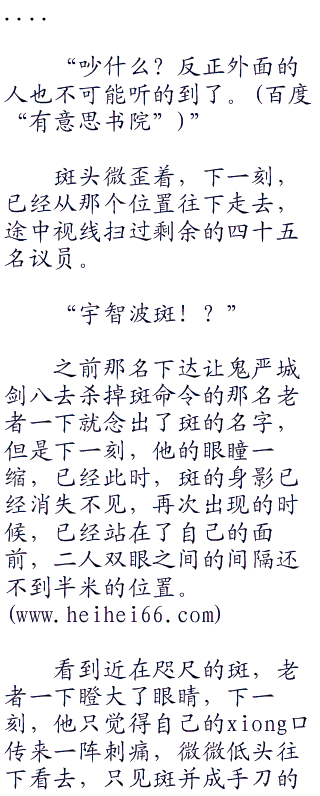 ....
“吵什么？反正外面的
人也不可能听的到了。(百度
“有意思书院”)”
斑头微歪着，下一刻，
已经从那个位置往下走去，
途中视线扫过剩余的四十五
名议员。
“宇智波斑！？”
之前那名下达让鬼严城
剑八去杀掉斑命令的那名老
者一下就念出了斑的名字，
但是下一刻，他的眼瞳一
缩，已经此时，斑的身影已
经消失不见，再次出现的时
候，已经站在了自己的面
前，二人双眼之间的间隔还
不到半米的位置。
(www.heihei66.com)
看到近在咫尺的斑，老
者一下瞪大了眼睛，下一
刻，他只觉得自己的xiong口
传来一阵刺痛，微微低头往
下看去，只见斑并成手刀的